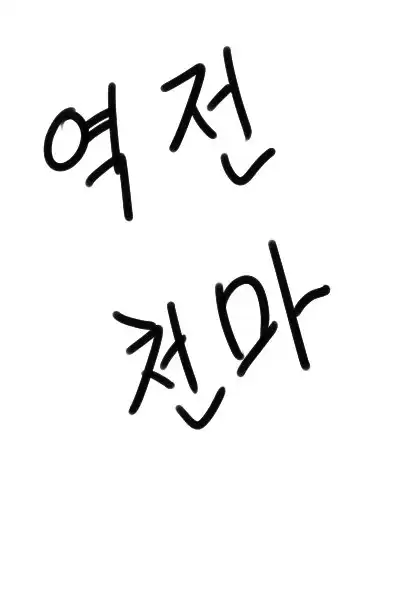 역전
천마